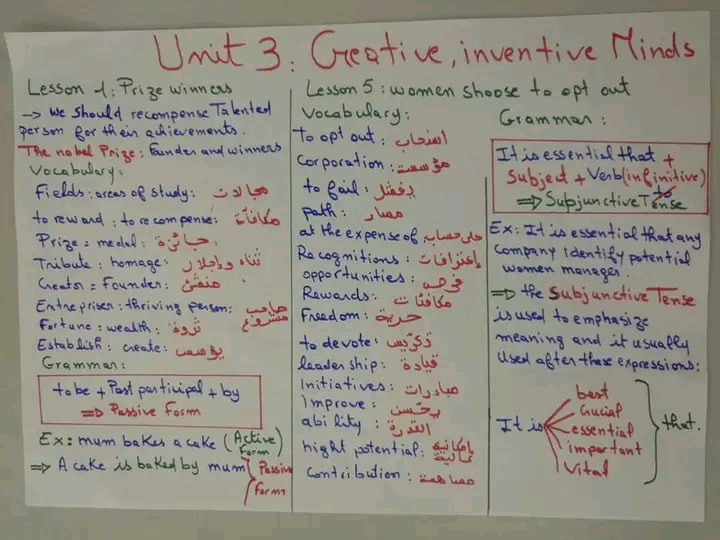 Unit 3: Creative, inventive Minds
Lesson 1: Prize winners
→ We should recompense Talented
person for their achievements.
The nobel Prize: founder and winners
Vocabulary:
Fields: areas of study: مجالات
to reward: to recompense: مكافأة
Prize = medal: جائزة
Tribute: homage: ثناء وإجلال
Creator = Founder: منشئ
Entrepriser: thriving person: صاحب مشروع
Fortune: wealth: ثروة
Establish: create: يؤسس
Grammar:
to be + Past participal + by
⇒ Passive Form
Ex: mum bakes a cake (Active Form)
⇒ A cake is baked by mum Passive Form
Lesson 5: women shoose to opt out
Vocabulary:
To opt out: انسحاب
Corporation: مؤسسة
to fail: يفشل
path: مسار
at the expense of: على حساب
Recognitions: إعترافات
opportunities: فرصة
Rewards: مكافئات
Freedom: حرية
to devote: تكريس
leadership: قيادة
Initiatives: مبادرات
Improve: يحسن
ability: القدرة
hight potential: إمكانية عالية
Contribution: مساهمة
Grammar:
It is essential that +
Subject + Verb (infinitive)
⇒ Subjunctive Tense
to
Ex: It is essential that any
company identify potential
women manager.
⇒ the Subjunctive Tense
is used to emphasize
meaning and it usually
used after these expressions:
It is
best
Crucial
essential
important
Vital
that.